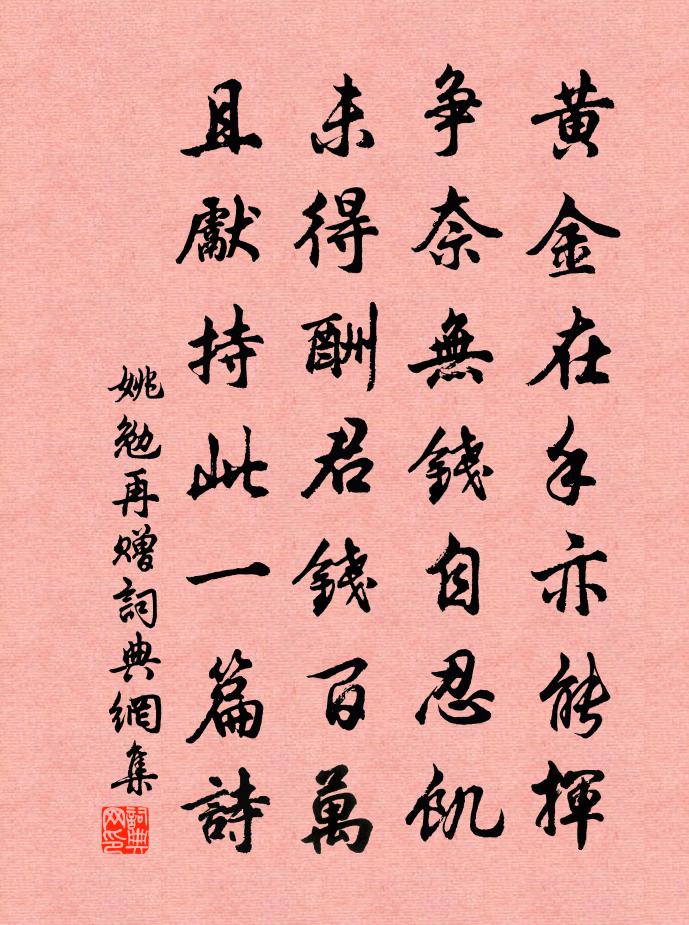 黄金在手亦能揮
争奈無錢自忍飢
未得酬君錢百萬
且獻持此一篇詩
姚勉再赠詞典網集
詞典网印